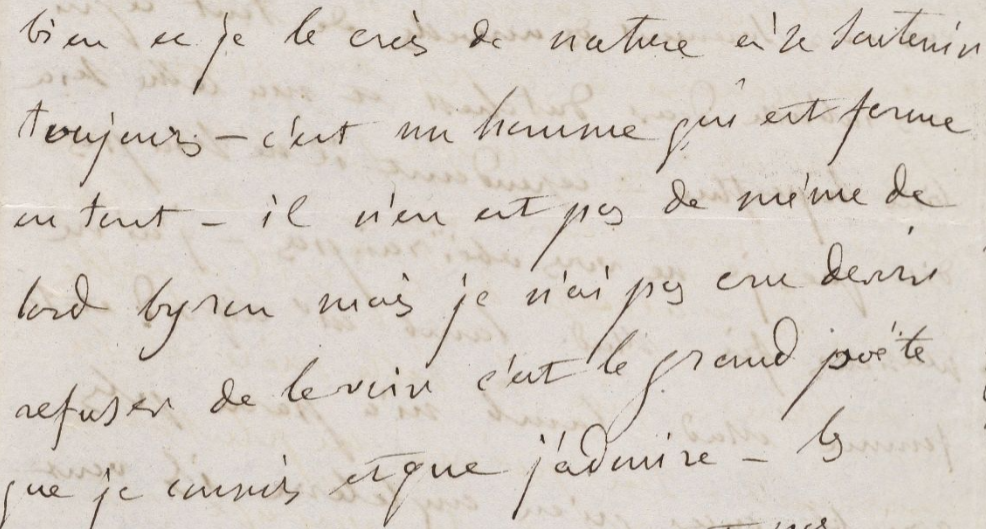 bien et je le crois de nature à se soutenir
toujours – c'est un homme qui est ferme
en tout – il n'en est pas de même de
lord byron mais je n'ai pas cru devoir
refuser de le voir c'est le grand poëte
que je connois et que j'admire – les